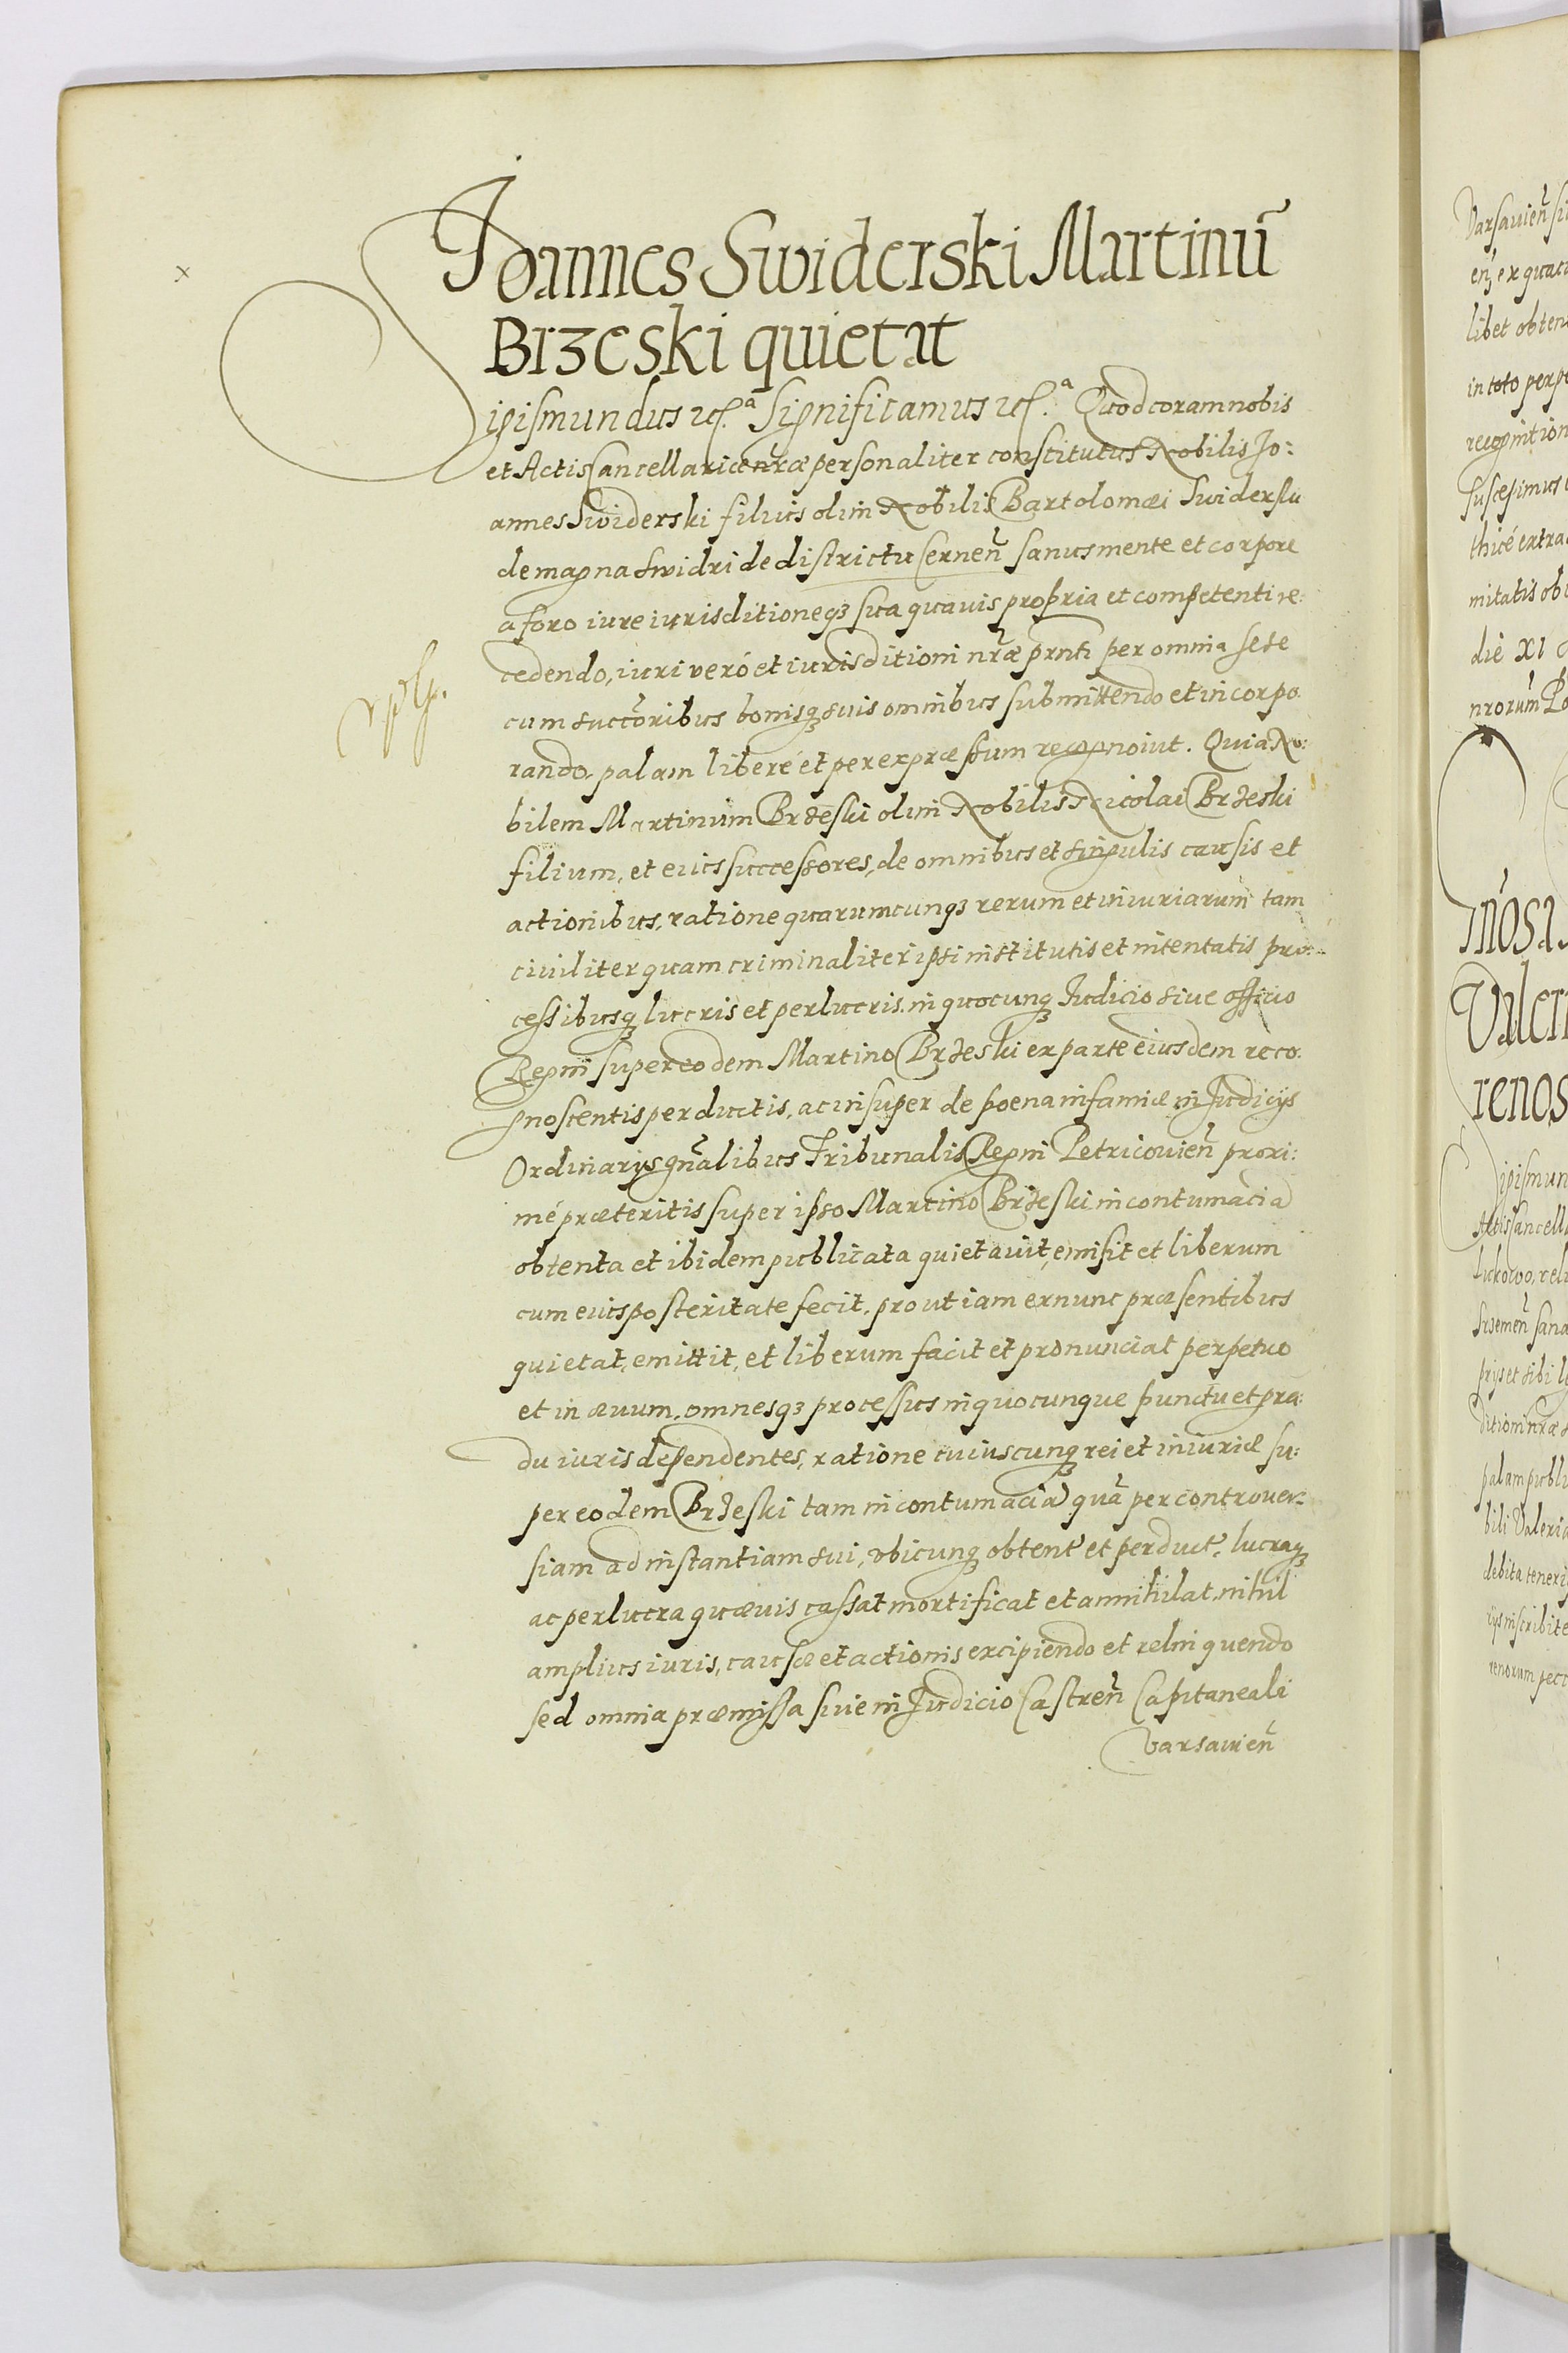 Joannes Swiderski Martinũ
Brzeski quietat
Sigismundus etc.ª Significamus etc.ª Quod coram nobis
et Actis Cancellariæ nr̃æ personaliter constitutus Nobilis Jo:
annes Swiderski filius olim Nobilis Bartolomæi Swiderski
de magna Swidri de districtu Cernen̄ sanus mente et corpore
a foro iure iurisditioneqꝫ sua quavis propria et competenti re:
cedendo, iuri veró et iurisditioni nr̃æ prñti per omnia sese
cum succ̃oribus bonisqꝫ suis omnibus submittendo et incorpo
rando, palam liberé et per expræssum recognovit. Quia No:
bilem Martinum Brzeski olim Nobilis Nicolai Brzeski
filium, et eius successores, de omnibus et singulis causis et
actionibus, ratione quarumcunqꝫ rerum et iniuriarum tam
civiliter quam criminaliter ipsi institutis et intentatis pro:
cessibusqꝫ lucris et perlucris, in quocunqꝫ Judicio sive officio
Regni super eodem Martino Brzeski ex parte eiusdem reco:
gnoscentis perductis, ac insuper de poena infamiæ in Judicijs
Ordinarijs gñalibus Tribunalis Regni Petricovien̄ proxi:
mé præteritis super ipso Martino Brzeski in contumacia
obtenta et ibidem publicata quietavit, emisit et liberum
cum eius posteritate fecit, prout iam ex nunc præsentibus
quietat, emittit, et liberum facit et pronunciat perpetuo
et in ævum, omnesqꝫ processus in quocunque punctu et gra:
du iuris dependentes, ratione cuiuscunqꝫ rei et iniuriæ su:
per eodem Brzeski tam in contumacia quã per controver:
siam ad instantiam sui, ubicunqꝫ obtent' et perduct', lucraqꝫ
ac perlucra quævis cassat mortificat et annihilat, nihil
amplius iuris, causæ et actionis excipiendo et relinquendo
sed omnia præmissa sive in Judicio Castren̄ Capitaneali
Varsavien̄